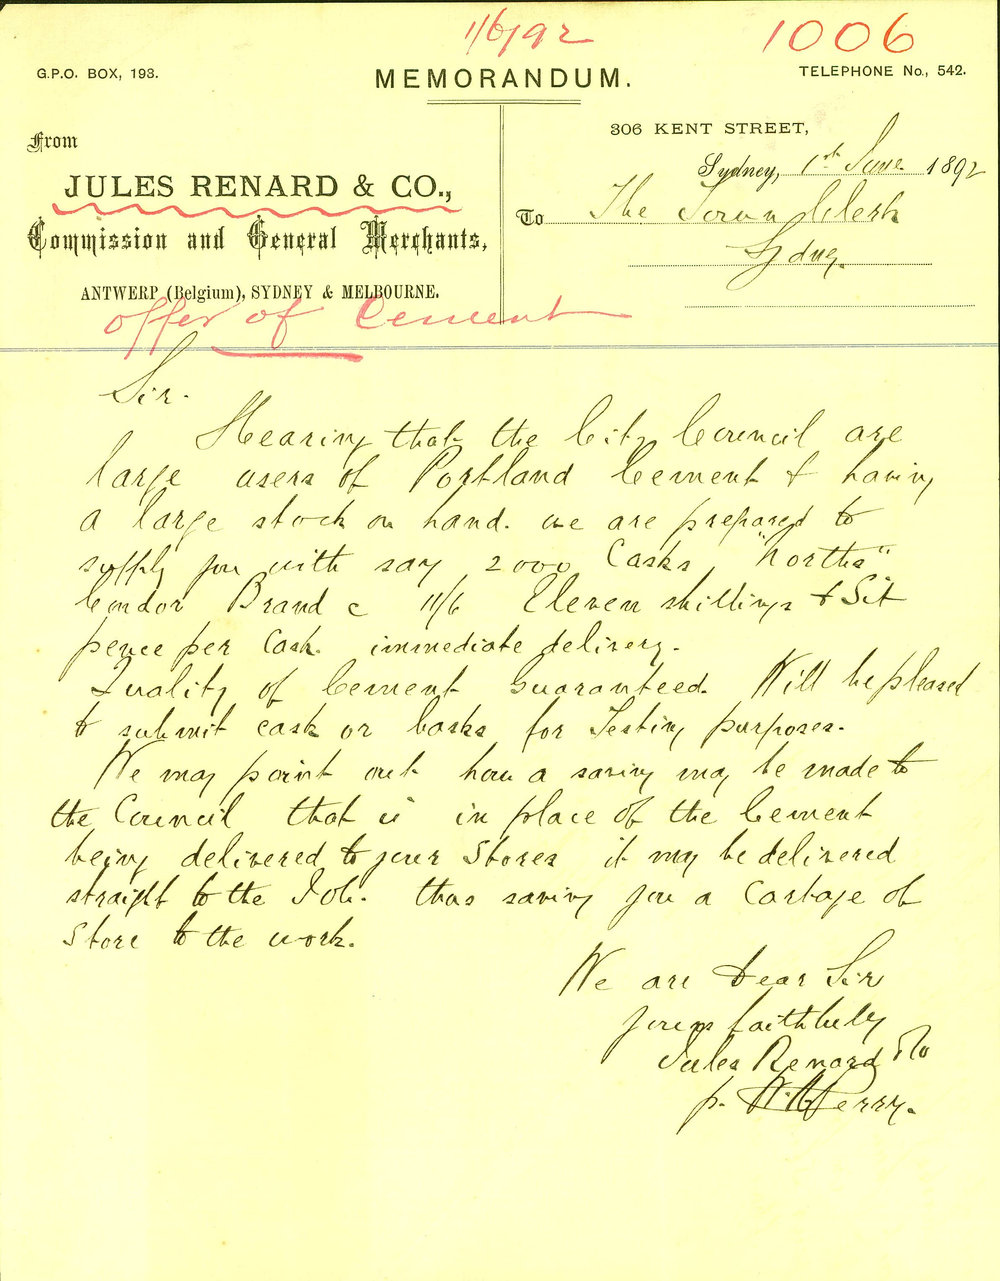 1/6/92
1006
G.P.O. BOX, 193.
MEMORANDUM.
TELEPHONE No., 542.
306 KENT STREET,
From
Sydney, 1st June 1892
JULES RENARD & CO.,
To The Town Clerk
Commission and General Merchants,
Sydney.
ANTWERP (Belgium), SYDNEY & MELBOURNE.
Offer of Cement
Sir.
Hearing that the City Council are
large users of Portland Cement & having
a large stock on hand. we are prepared to
supply you with say 2000 Casks "North's"
Condor Brand c 11/6 Eleven shillings & Six
pence per Cask. immediate delivery.
Quality of Cement Guaranteed. Will be pleased
to submit cask or casks for Testing purposes.
We may point out how a saving may be made to
the Council that is in place of the Cement
being delivered to your Stores it may be delivered
straight to the Job. thus saving you a Cartage of
Store to the work.
We are Dear Sir
Yours faithfully
Jules Renard & Co
p. Perry.